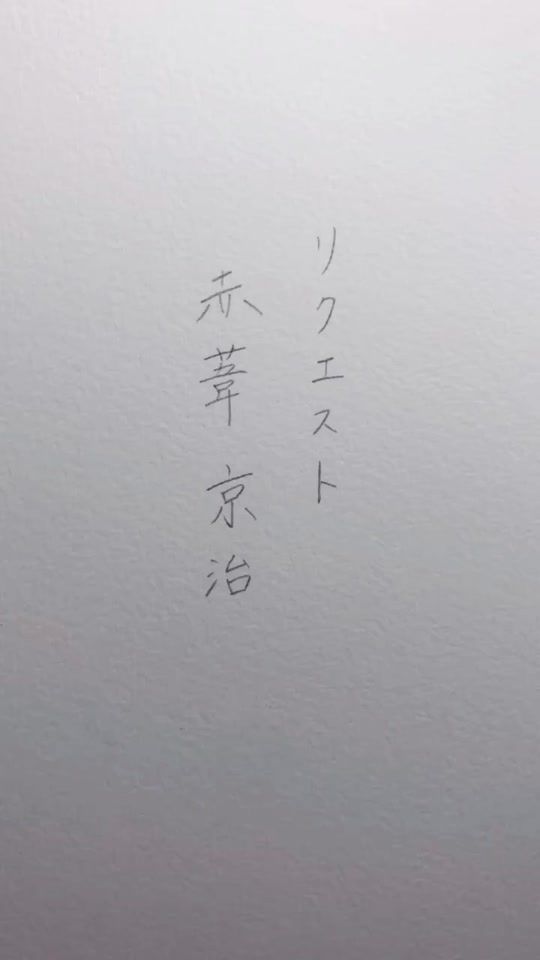 リクエスト
赤葦京治